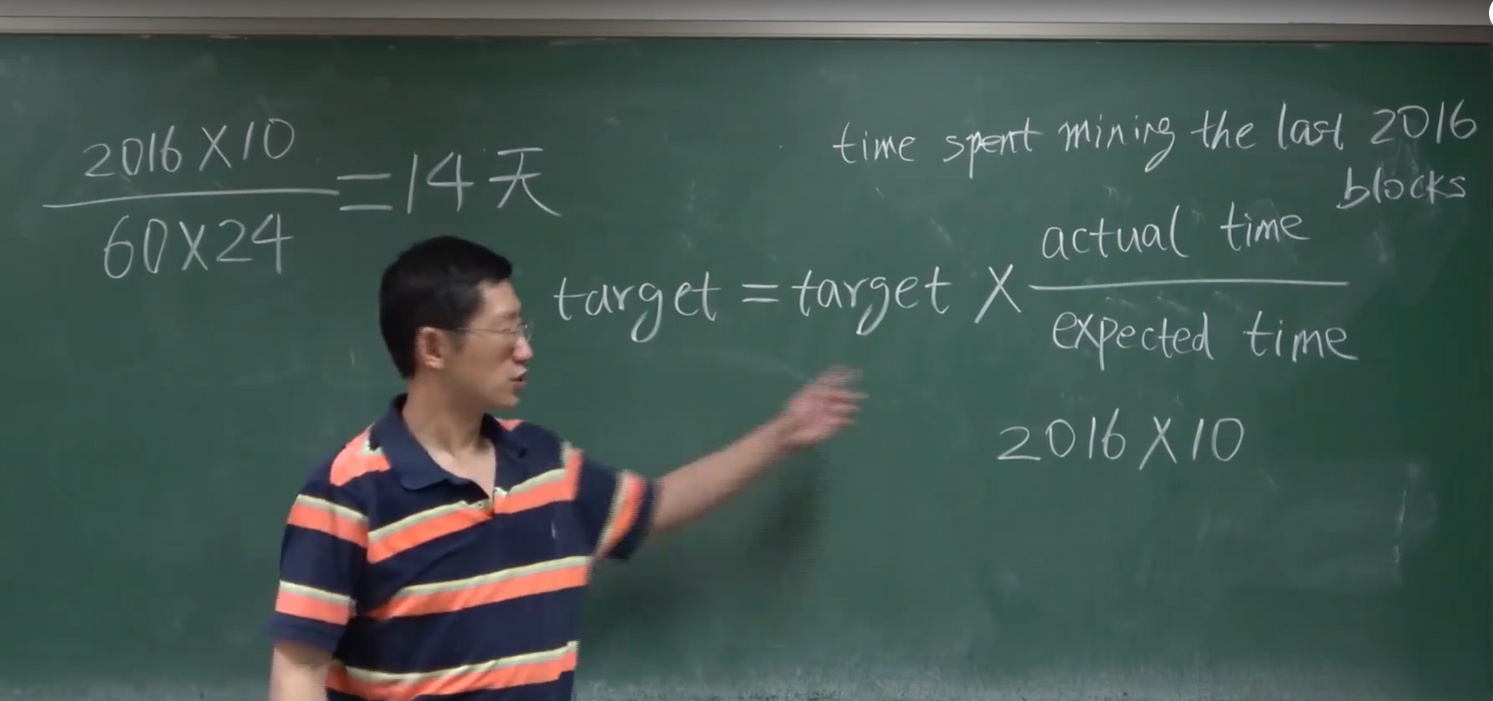 2016 X 10
60 X 24
= 14 天
time spent mining the last 2016
blocks
target = target X
actual time
expected time
2016 X 10